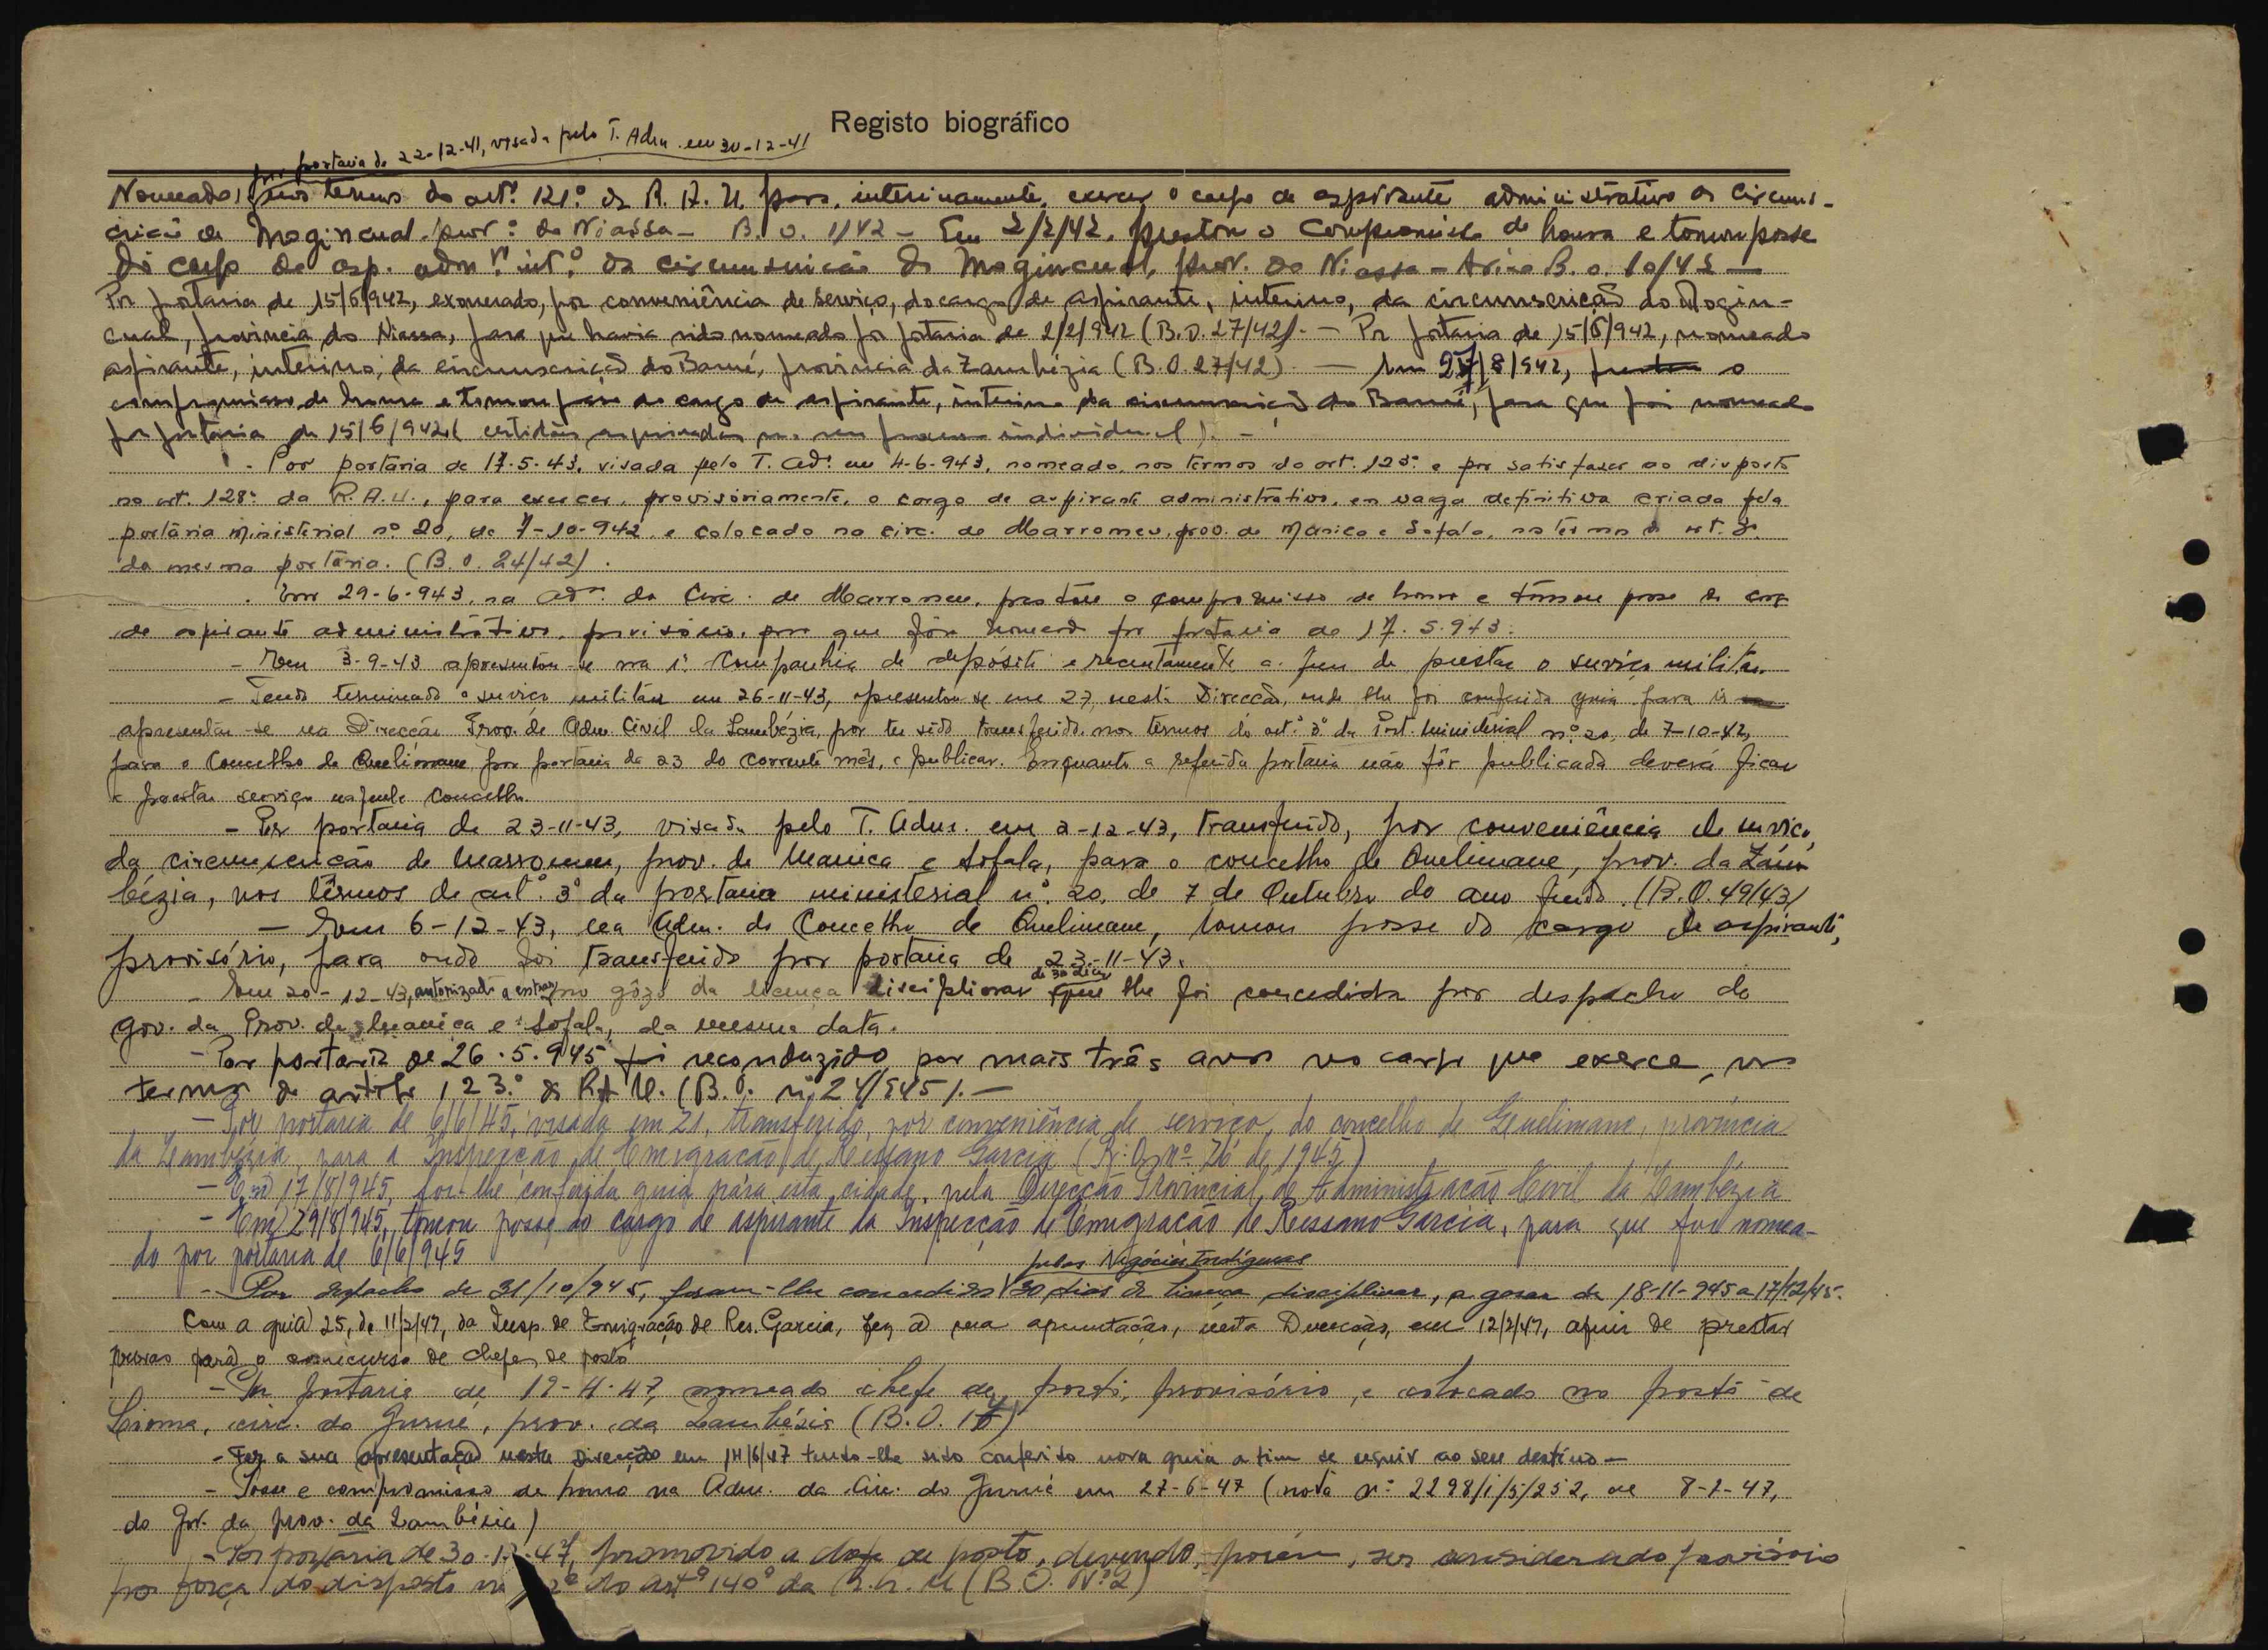 Registo biográfico
por portaria de 22-12-41, visada pelo T. Adm. em 30-12-41
Nomeado, nos termos do artº. 121º da R. A. U. para, interinamente, exercer o cargo de aspirante administrativo da circuns-
crição de Mogincual, provª. do Niassa - B. O. 1/42 - Em 2/2/42, prestou o Compromisso de honra e tomou posse
do cargo de asp. admvº. intº. da circunscrição do Mogincual, prov. do Niassa - Aviso B. O. 10/42 -
Por portaria de 15/6/942, exonerado, por conveniência de serviço, do cargo de aspirante, interino, da circunscrição do Mogin-
cual, província do Niassa, para que havia sido nomeado por portaria de 2/2/942 (B.O. 27/42). - Por portaria de 15/6/942, nomeado
aspirante, interino, da circunscrição do Barué, província da Zambézia (B.O. 27/42). - Em 27/8/942, prestou o
compromisso de honra e tomou posse do cargo de aspirante, interino da circunscrição do Barué, para que foi nomeado
por portaria de 15/6/942 (certidões arquivadas no seu processo individual). -
- Por portaria de 17-5-43, visada pelo T. Adº. em 4-6-943, nomeado, nos termos do art. 123º e por satisfazer ao disposto
no art. 128º da R.A.U., para exercer, provisòriamente, o cargo de aspirante administrativo, em vaga definitiva criada pela
portaria Ministerial nº 20, de 7-10-942 e colocado na circ. de Marromeu, prov. de Manica e Sofala, nos termos do art. 3º
da mesma portaria. (B. O. 24/42).
- Em 29-6-943, na admº. da Circ. de Marromeu, prestou o compromisso de honra e tomou posse do cargo
de aspirante administrativo, provisório, para que fôra nomeado por portaria de 17.5.943.
- Em 3-9-43 apresentou-se na 1ª Companhia de depósito e recrutamento a fim de prestar o serviço militar.
- Tendo terminado o serviço militar em 26-11-43, apresentou-se em 27, nesta Direcção, onde lhe foi conferida guia para ir
apresentar-se na Direcção Prov. de Adm. Civil da Zambézia, por ter sido transferido nos termos do artº. 3º da Port. Ministerial nº. 20, de 7-10-42,
para o Concelho de Quelimane, por portaria de 23 do corrente mês, a publicar. Enquanto a referida portaria não fôr publicada deverá ficar
a prestar serviço naquele Concelho.
- Por portaria de 23-11-43, visada pelo T. Adm. em 2-12-43, transferido, por conveniência de serviço,
da circunscrição de Marromeu, prov. de Manica e Sofala, para o concelho de Quelimane, prov. da Zam-
bézia, nos têrmos do artº. 3º da portaria ministerial nº. 20, de 7 de Outubro do ano findo. (B.O. 49/43)
- Em 6-12-43, na Adm. do Concelho de Quelimane, tomou posse do cargo de aspirante,
provisório, para onde foi transferido por portaria de 23-11-43.
- Em 20-12-43, autorizado a entrar no gôzo da licença disciplinar de 30 dias que lhe foi concedida por despacho do
Gov. da Prov. de Manica e Sofala, da mesma data.
- Por portaria de 26.5.945 foi reconduzido, por mais três anos no cargo que exerce, nos
termos do artigo 123.º da R.A.U. (B.O. nº 24/945). -
- Por portaria de 6/6/45, visada em 21, transferido, por conveniência de serviço, do concelho de Quelimane, província
da Zambézia, para a Inspecção de Emigração de Ressano Garcia (B.O. nº 26 de 1945)
- Em 17/8/945, foi-lhe conferida guia para esta cidade, pela Direcção Provincial de Administração Civil da Zambézia
- Em 29/8/945, tomou posse do cargo de aspirante da Inspecção de Emigração de Ressano Garcia, para que foi nomea-
do por portaria de 6/6/945
- Por despacho de 31/10/945, foram-lhe concedidos pelos Negócios Indígenas 30 dias de licença disciplinar, a gosar de 18-11-945 a 17/12/45.
Com a guia 25, de 11/2/47, da Insp. de Emigração de Res. Garcia, fez a sua apresentação, nesta Direcção, em 12/2/47, afim de prestar
provas para o concurso de chefes de posto
- Por portaria de 12-4-47, nomeado chefe de posto, provisório, e colocado no posto de
Lioma, circ. do Gurué, prov. da Zambézia (B.O. 17)
- Fez a sua apresentação nesta Direcção em 14/6/47 tendo-lhe sido conferido nova guia a fim de seguir ao seu destino -
- Posse e compromisso de honra na Adm. da Circ. do Gurué em 27-6-47 (nota nº 2298/1/5/252, de 8-7-47,
do Gov. da prov. da Zambézia)
- Por portaria de 30-12-47, promovido a chefe de posto, devendo, porém, ser considerado provisório
por força do disposto no 2º do artº 140º da R.A.U (B.O. Nº 2)